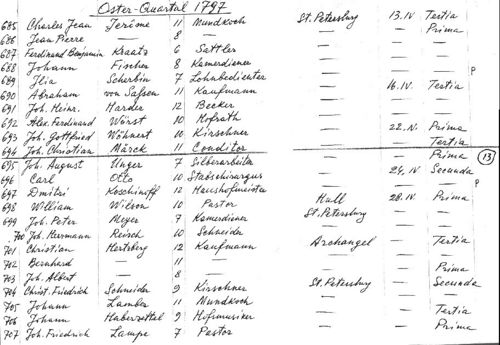 Oster-Quartal 1797
685 Charles Jean Jerôme 11 Mundkoch St. Petersburg 13. IV Tertia
686 Jean Pierre — 8 — — — Prima
687 Ferdinand Benjamin Kraatz 6 Sattler — — —
688 Johann Fischer 8 Kamerdiener — — —
689 Ilia Scherbin 7 Lohnbedienter — — — P
690 Abraham von Saßen 11 Kaufmann — 16. IV. Tertia
691 Joh. Heinr. Harder 12 Becker — — —
692 Alex. Ferdinand Wünst 10 Hofrath — — —
693 Joh. Gottfried Wöhnert 10 Kirschner — 22. IV. Prima
694 Joh. Christian Märck 11 Conditor — — Tertia
695 Joh. August Unger 7 Silberarbeiter — — Prima 13
696 Carl Otto 10 Stabschirurgus — 24. IV Secunda
697 Dmitri Koschinoff 12 Haushofmeister — — — P
698 William Wilson 10 Pastor Hull 28. IV Prima
699 Joh. Peter Meyer 7 Kamerdiener St. Petersburg — —
700 Joh. Herrmann Reisch 10 Schneider — — —
701 Christian Hertzberg 12 Kaufmann Archangel — Tertia
702 Bernhard — 11 — — — —
703 Joh. Albert — 8 — — — Prima
704 Christ. Friedrich Schneider 9 Kirschner St. Petersburg — Secunda
705 Johann Lamber 11 Mundkoch — — —
706 Johann Haberzettel 9 Hofmusiker — — Tertia
707 Joh. Friedrich Lampe 7 Pastor — — Prima